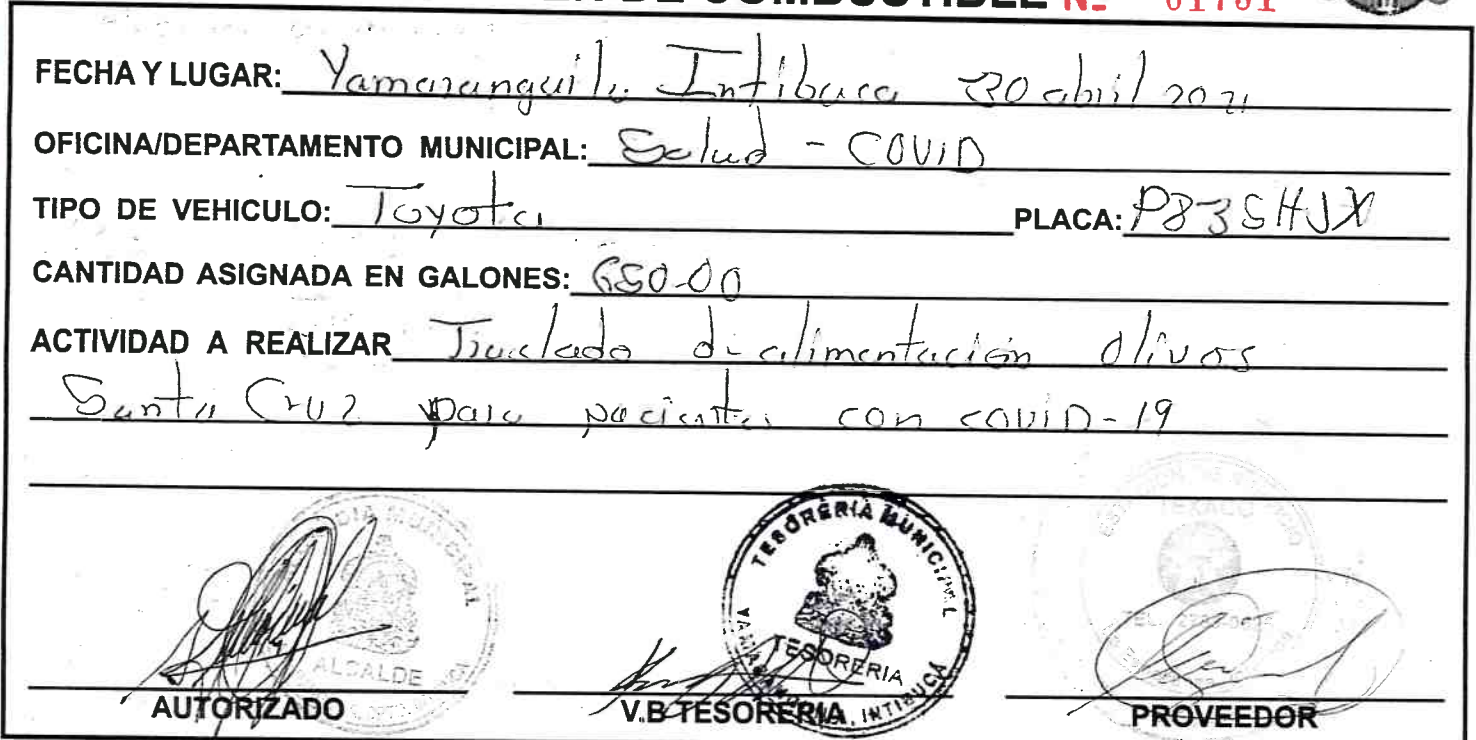 DE COMBUSTIBLE Nº 01701
FECHA Y LUGAR: Yamaranguila Intibuca 20 abril 2021
OFICINA/DEPARTAMENTO MUNICIPAL: Salud - COVID
TIPO DE VEHICULO: Toyota PLACA:
CANTIDAD ASIGNADA EN GALONES: 650.00
ACTIVIDAD A REALIZAR Traslado de alimentación Olivos
Santa Cruz para pacientes con COVID-19
ALCALDE
TESORERIA MUNICIPAL
TESORERIA
YAMARANGUILA, INTIBUCA
TEXACO
AUTORIZADO V.B TESORERIA PROVEEDOR